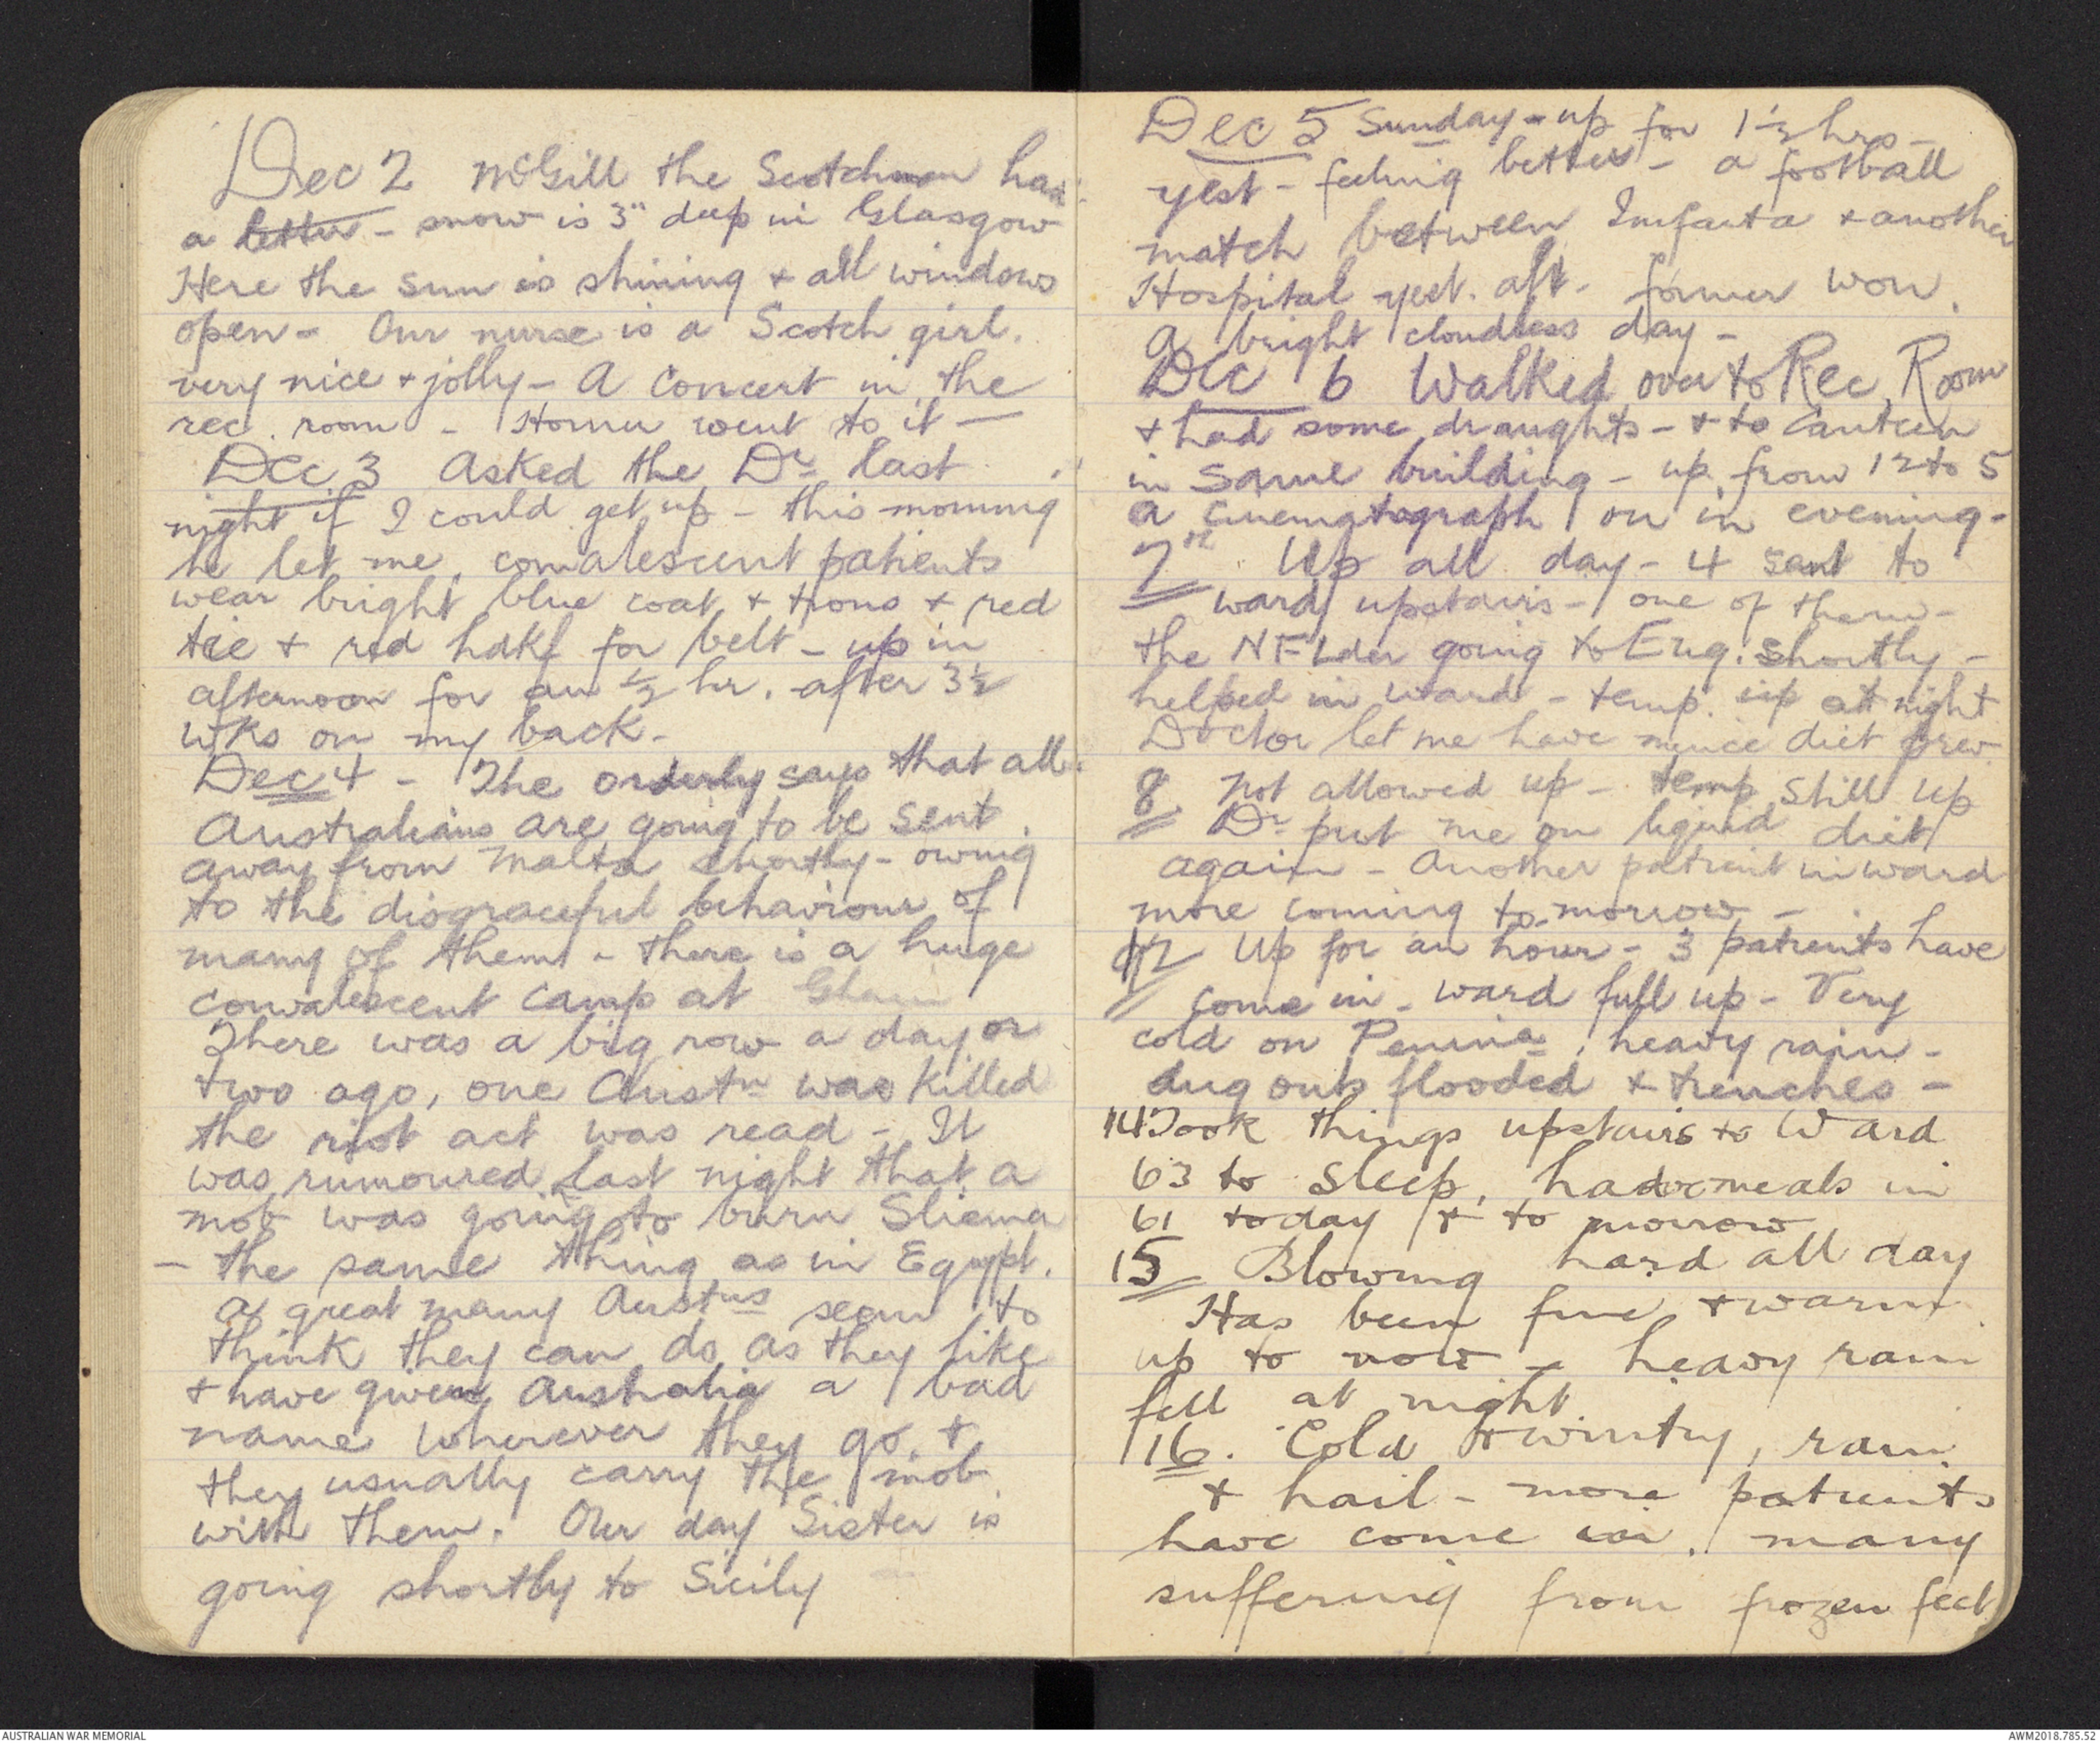 Dec 2 McGill the Scotchman has
a letter - snow is 3" deep in Glasgow
Here the sun is shining + all windows
open - Our nurse is a Scotch girl.
very nice + jolly - A concert in the
rec. room - Homer went to it -
Dec 3 Asked the Dr last
night if I could get up - this morning
he let me, convalescent patients
wear bright blue coat + trous + red
tie + red hdkf for belt - up in
afternoon for an ½ hr. after 3½
wks on my back -
Dec 4 - The orderly says that all
Australians are going to be sent
away from Malta shortly - owing
to the disgraceful behaviour of
many of them - there is a huge
convalescent camp at
There was a big row a day or
two ago, one Austn was killed
the riot act was read - It
was rumoured last night that a
mob was going to burn Sliema
- the same thing as in Egypt.
A great many Austns seem to
think they can do as they like
+ have given Australia a bad
name wherever they go, +
they usually carry the mob
with them. Our day Sister is
going shortly to Sicily
Dec 5 Sunday - up for 1½ hrs -
yest - feeling better - a football
match between Imfarta + another
Hospital yest. aft. former won.
A bright cloudless day -
Dec 6 Walked over to Rec. Room
+ had some draughts - + to Canteen
in same building - up from 12 to 5
a cinematograph on in evening -
7th Up all day - 4 sent to
ward upstairs - one of them -
the NFLder going to Eng. shortly -
helped in ward - temp. up at night
Doctor let me have mince diet
8 Not allowed up - temp still up
Dr put me on liquid diet
again - Another patient in ward
more coming to-morrow -
12 Up for an hour - 3 patients have
come in - ward full up - Very
cold on Penina, heavy rain -
dug outs flooded + trenches -
14 Took things upstairs to Ward
63 to sleep, have meals in
61 today + to morrow
15 Blowing hard all day
Has been fine + warm
up to now - heavy rain
fell at night
16. Cold + wintry, rain
+ hail - more patients
have come in. many
suffering from frozen feet
AUSTRALIAN WAR MEMORIAL
AWM2018.785.52